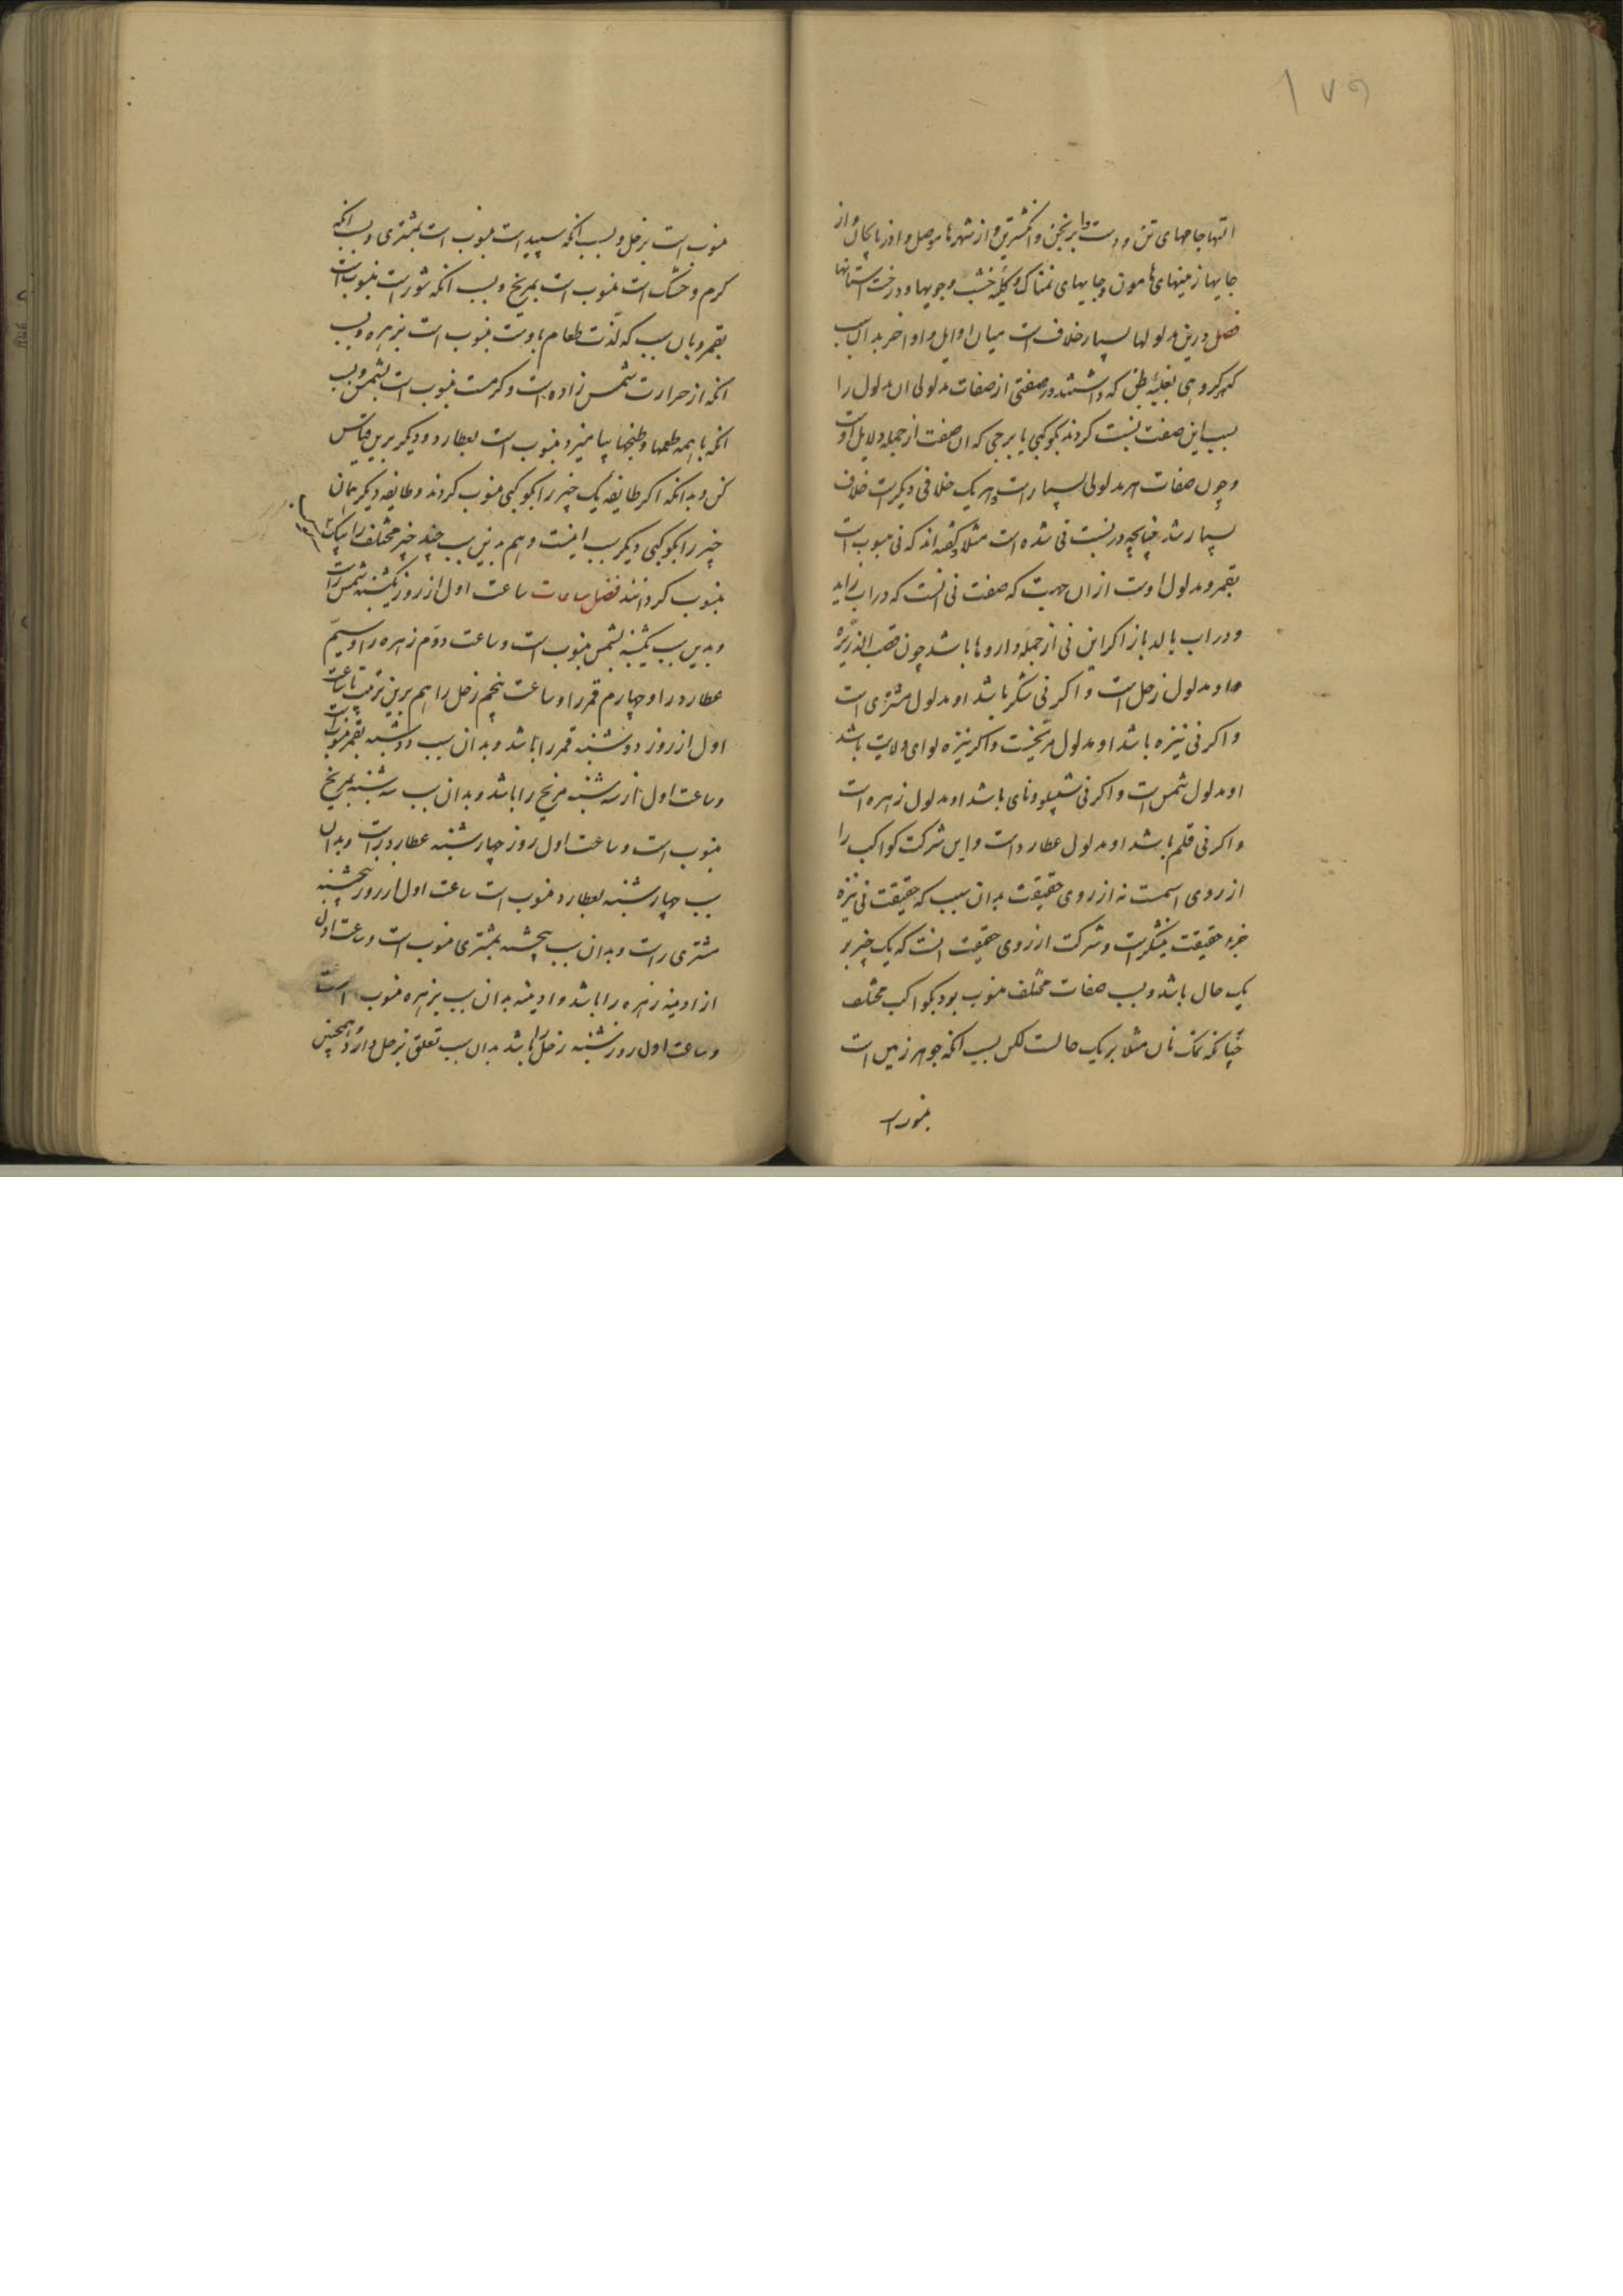 ۱۷۹
التها جامهای تن و دست وابرنجن و انکشترین و از شهرها موصل و اذربایجان و از
جایها زمینهای هامون و جایهای نمناک و کله خشب و جویها و درخت استانها
فصل درین مدلولها بسیار خلاف است میان اوایل و اواخر بدان سبب
که هر کروهی بغلبهٔ ظن که داشتند در صفتی از صفات مدلولی ان مدلول را
بسبب این صفت نسبت کردند بکوکبی یا برجی که ان صفت از جمله دلایل اوست
و چون صفات هر مدلولی بسیار است و هر یک خلافی دیکر است خلاف
بسیار شد چنانچه در نسبت نی شده است مثلا کفته اند که نی منسوب است
بقمر و مدلول اوست از ان جهت که صفت نی انست که در اب زاید
و در اب بالد باز اکر این نی از جمله داروها باشد چون قصب الذریره
او مدلول زحل است و اکر نی شکر باشد او مدلول مشتری است
و اکر نی نیزه باشد او مدلول مریخست و اکر نیزه لوای ولایت باشد
او مدلول شمس است و اکر نی شپیلو و نای باشد او مدلول زهره است
و اکر نی قلم باشد او مدلول عطارد است و این شرکت کواکب را
از روی اسمست نه از روی حقیقت بدان سبب که حقیقت نی نیزه
جزو حقیقت نیشکر است و شرکت از روی حقیقت انست که یک چیز بر
یک حال باشد و بسبب صفات مختلف منسوب بود بکواکب مختلف
چنانکه نمک نان مثلا بر یک حالست لکن بسبب انکه جوهر زمین است
منسوب است
منسوب است بزحل و بسبب انکه سپید است منسوب است بمشتری و بسبب انکه
کرم و خشک است منسوب است بمریخ و بسبب انکه شور است منسوب است
بقمر و بان سبب که لذت طعام باوست منسوب است بزهره و بسبب
انکه از حرارت شمس زاده است و کرمست منسوب است بشمس و بسبب
انکه با همه طعمها و طبخها بیامیزد منسوب است بعطارد و دیکر برین قیاس
کن و بدانکه اکر طایفه یک چیز را بکوکبی منسوب کردند و طایفه دیکر همان
چیز را بکوکبی دیکر سبب اینست و هم بدین سبب چند چیز مختلف را بیک
منسوب کردانند فصل ساعات ساعت اول از روز یکشنبه شمس راست
و بدین سبب یکشنبه بشمس منسوب است و ساعت دوم زهره را و سیم
عطارد را و چهارم قمر را و ساعت پنجم زحل را هم برین ترتیب تا ساعت
اول از روز دوشنبه قمر را باشد و بدان سبب دوشنبه بقمر منسوب است
و ساعت اول از سه شنبه مریخ را باشد و بدان سبب سه شنبه بمریخ
منسوب است و ساعت اول روز چهارشنبه عطارد راست و بدان
سبب چهارشنبه بعطارد منسوب است ساعت اول از روز پنجشنبه
مشتری راست و بدان سبب پنجشنبه بمشتری منسوب است و ساعت اول
از ادینه زهره را باشد و ادینه بدان سبب بزهره منسوب است
و ساعت اول روز شنبه زحل را باشد بدان سبب تعلق بزحل دارد و همچنین